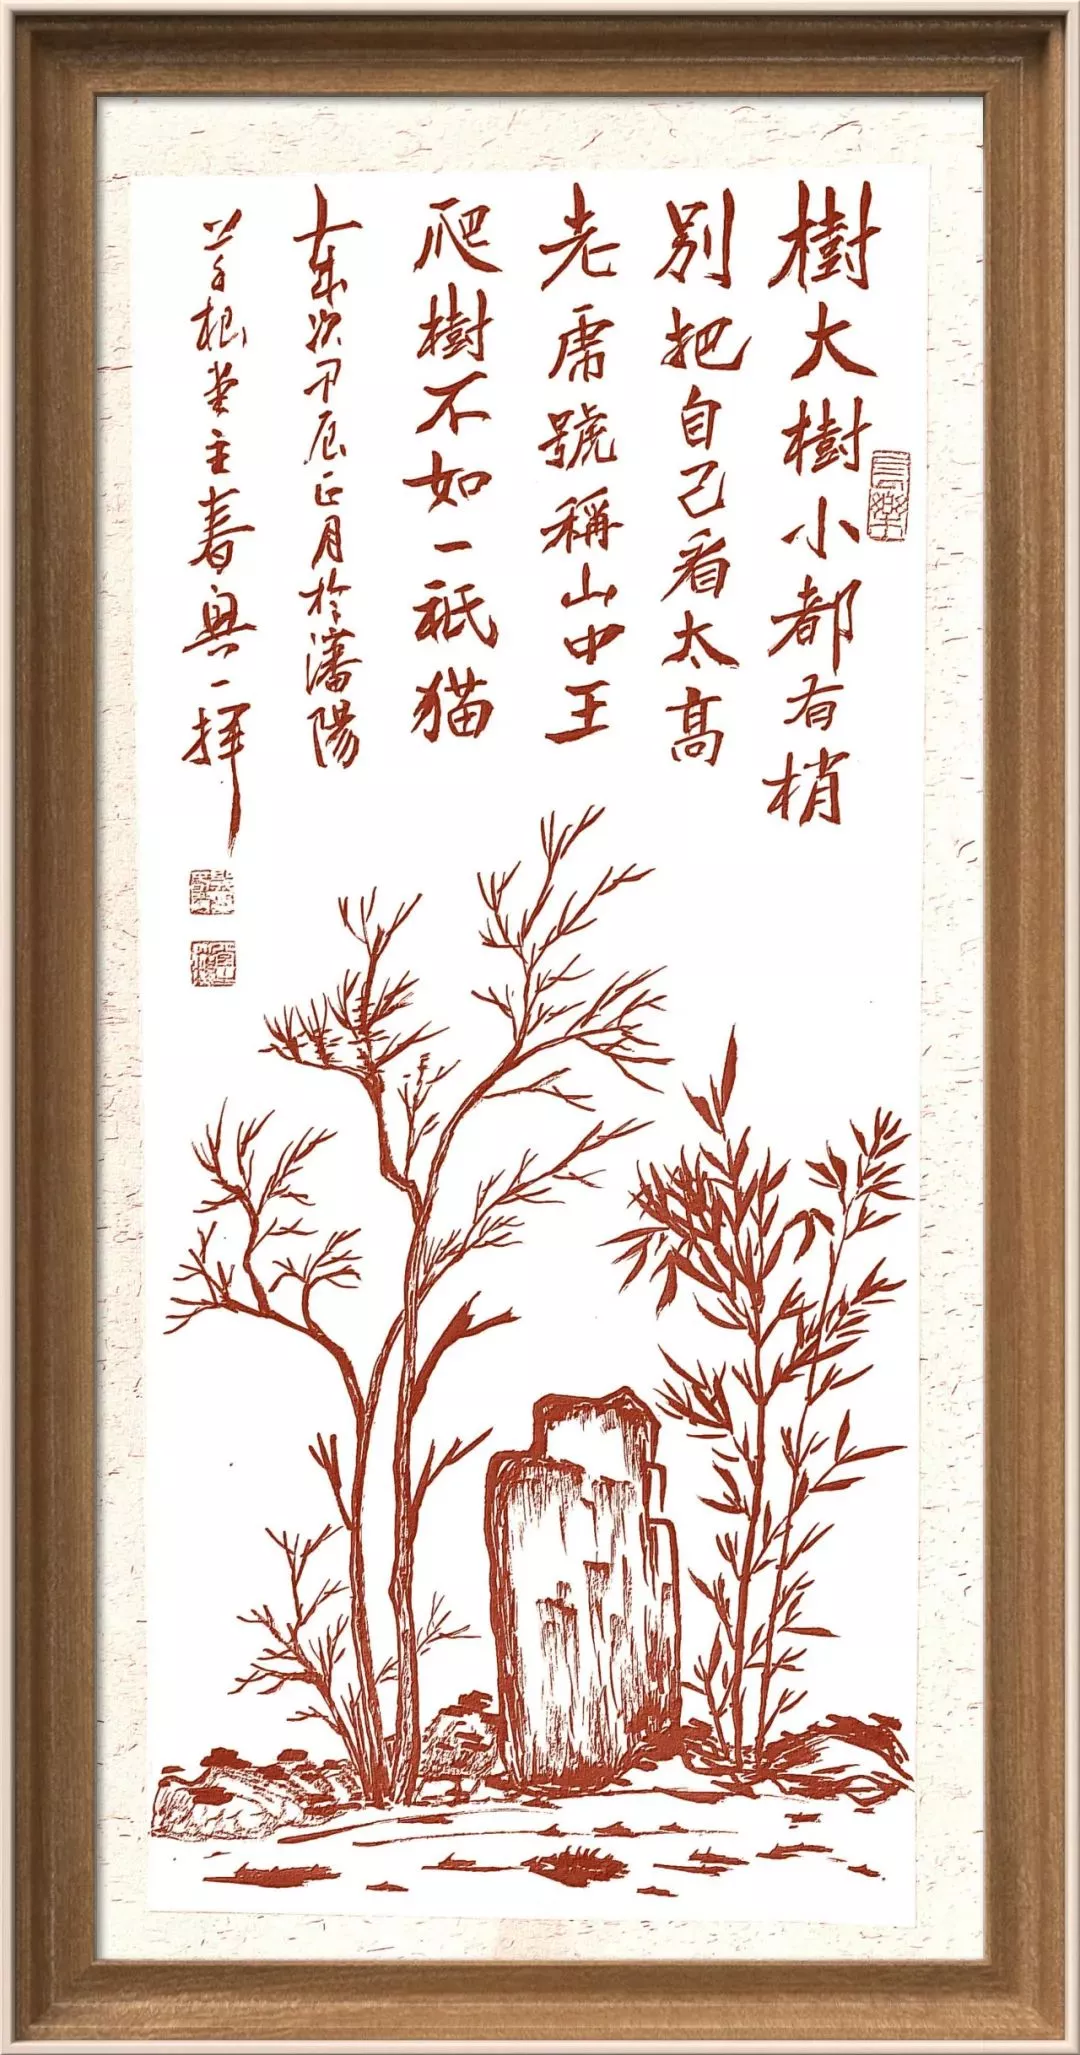 樹大樹小都有梢
別把自己看太高
老虎號稱山中王
爬樹不如一祇猫
歲次甲辰正月於瀋陽
草根堂主春興一揮